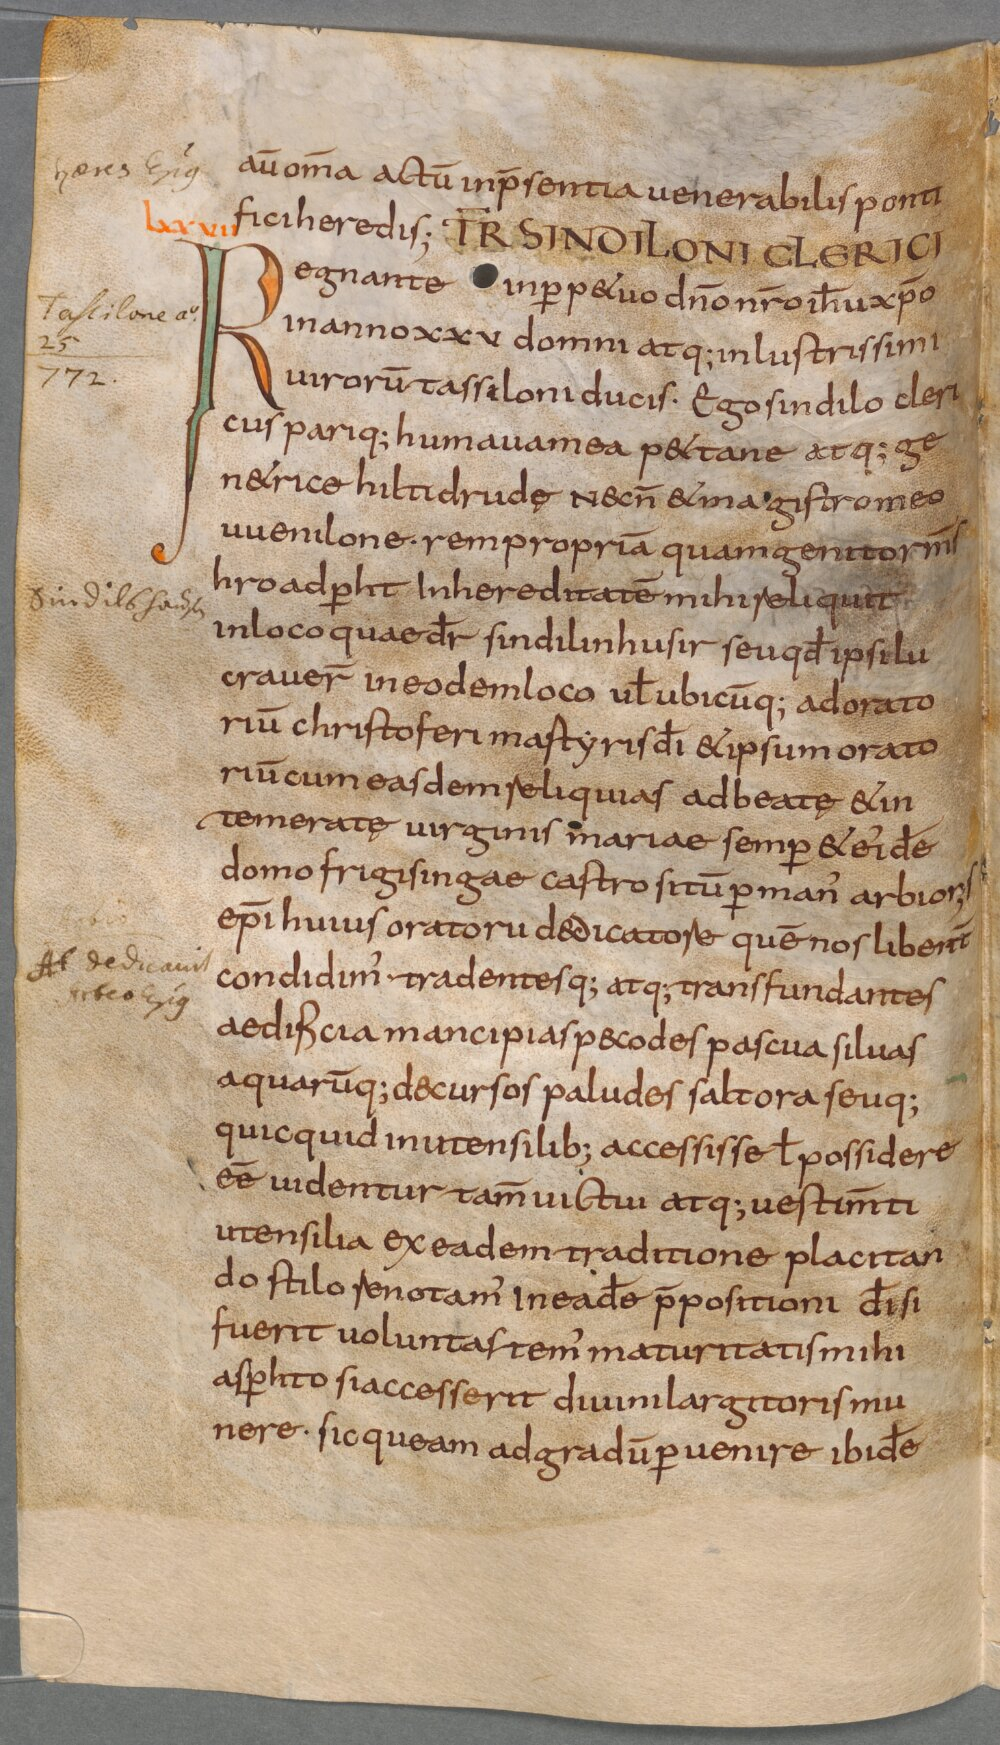 hæres Epīg
aū om̄a actū inp̄sentia uenerabilis ponti
lxxvii
fici heredis; TR̄ SINDILONI CLERICI
Regnante inp̲p&uo dn̄o nr̄o ih̄u xp̄o
Tassilone aº.
25
772.
in anno xxv domni atq; inlustrissimi
uirorū tassiloni ducis. Ego sindilo cleri
cus pariq; humauamea p&tane atq; ge
n&rice hiltidrudę Nec n̄ & magistro meo
uuenilone. rem propriā quam genitor m̄s
hroadp̲ht In hereditatē mihi reliquit
Sindilshausn
in loco quae dr̄ sindilinhusir seu qd̄ ipsi lu
crauer̄ in eodem loco ul̄ ubicūq; ad orato
riū christoferi mastyris dī & ipsum orato
riū cum easdem reliquias ad beatę & in
temeratę uirginis mariae semp̲ & ei de
domo frigisingae castro sitū p̲ man' arbior;s
ep̄i huius oratorii dedicatore quē nos libent̄
Hc dedicavit
arbeo Epīg
condidim' tradentesq; atq; transfundantes
aedificia mancipias p&codes pascua siluas
aquarūq; decursos paludes saltora seuq;
quicquid in utensilib; accessisse l̄ possidere
eē uidentur tam̄ uictui atq; uestim̄ti
utensilia ex eadem traditione placitan
do stilo renotam' In eade p̄positioni dī si
fuerit uoluntas tem' maturitatis mihi
asp̲hto si accesserit diuini largitoris mu
nere. sic queam ad gradū p̲uenire ibidē